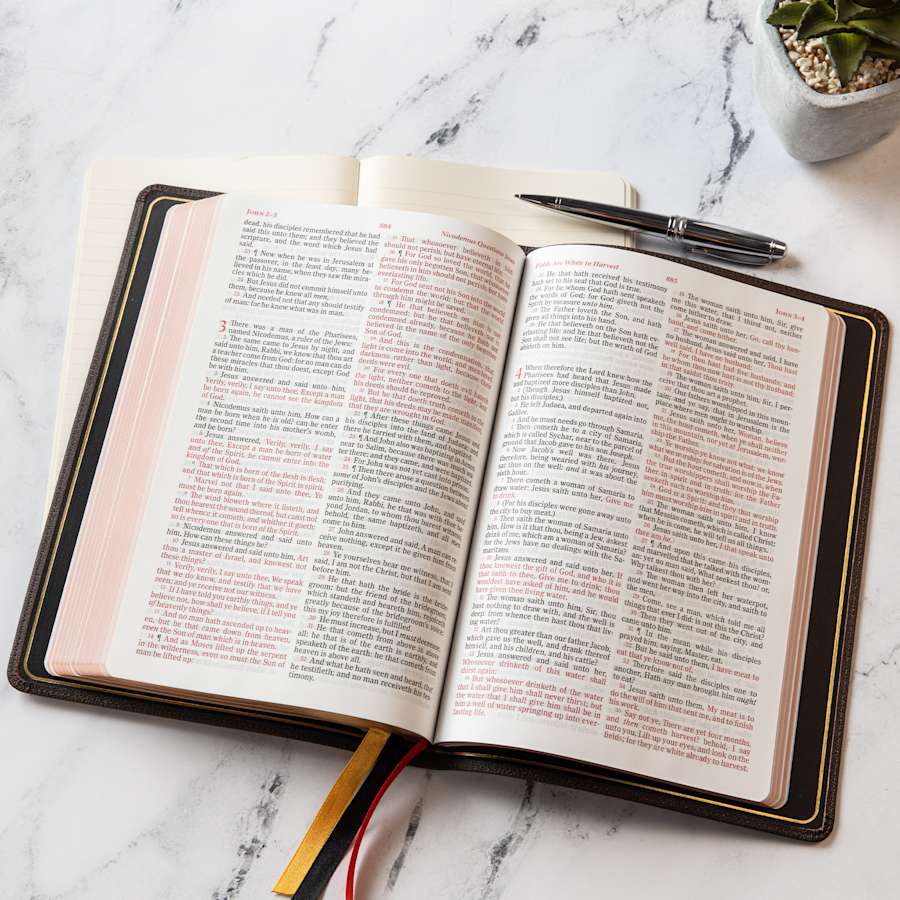 JOHN 2–3
dead, his disciples remembered that he had
said this unto them; and they believed the
scripture, and the word which Jesus had
said.
23 ¶ Now when he was in Jerusalem at
the passover, in the feast day, many be-
lieved in his name, when they saw the mira-
cles which he did.
24 But Jesus did not commit himself unto
them, because he knew all men,
25 And needed not that any should testify
of man: for he knew what was in man.
3 There was a man of the Pharisees,
named Nicodemus, a ruler of the Jews:
2 The same came to Jesus by night, and
said unto him, Rabbi, we know that thou art
a teacher come from God: for no man can do
these miracles that thou doest, except God
be with him.
3 Jesus answered and said unto him,
Verily, verily, I say unto thee, Except a man
be born again, he cannot see the kingdom
of God.
4 Nicodemus saith unto him, How can a
man be born when he is old? can he enter
the second time into his mother's womb,
and be born?
5 Jesus answered, Verily, verily, I say
unto thee, Except a man be born of water
and of the Spirit, he cannot enter into the
kingdom of God.
6 That which is born of the flesh is flesh;
and that which is born of the Spirit is spirit.
7 Marvel not that I said unto thee, Ye
must be born again.
8 The wind bloweth where it listeth, and
thou hearest the sound thereof, but canst not
tell whence it cometh, and whither it goeth:
so is every one that is born of the Spirit.
9 Nicodemus answered and said unto
him, How can these things be?
10 Jesus answered and said unto him, Art
thou a master of Israel, and knowest not
these things?
11 Verily, verily, I say unto thee, We speak
that we do know, and testify that we have
seen; and ye receive not our witness.
12 If I have told you earthly things, and ye
believe not, how shall ye believe, if I tell you
of heavenly things?
13 And no man hath ascended up to heav-
en, but he that came down from heaven,
even the Son of man which is in heaven.
14 ¶ And as Moses lifted up the serpent
in the wilderness, even so must the Son of
man be lifted up:
884
Nicodemus Questions
15 That whosoever believeth in him
should not perish, but have eternal life.
16 ¶ For God so loved the world, that he
gave his only begotten Son, that whosoever
believeth in him should not perish, but have
everlasting life.
17 For God sent not his Son into the world
to condemn the world; but that the world
through him might be saved.
18 ¶ He that believeth on him is not
condemned: but he that believeth not is
condemned already, because he hath not
believed in the name of the only begotten
Son of God.
19 And this is the condemnation, that
light is come into the world, and men loved
darkness rather than light, because their
deeds were evil.
20 For every one that doeth evil hateth
the light, neither cometh to the light, lest
his deeds should be reproved.
21 But he that doeth truth cometh to the
light, that his deeds may be made manifest,
that they are wrought in God.
22 ¶ After these things came Jesus and
his disciples into the land of Judaea; and
there he tarried with them, and baptized.
23 ¶ And John also was baptizing in Aenon
near to Salim, because there was much wa-
ter there: and they came, and were baptized.
24 For John was not yet cast into prison.
25 ¶ Then there arose a question between
some of John's disciples and the Jews about
purifying.
26 And they came unto John, and said
unto him, Rabbi, he that was with thee be-
yond Jordan, to whom thou barest witness,
behold, the same baptizeth, and all men
come to him.
27 John answered and said, A man can re-
ceive nothing, except it be given him from
heaven.
28 Ye yourselves bear me witness, that I
said, I am not the Christ, but that I am sent
before him.
29 He that hath the bride is the bride-
groom: but the friend of the bridegroom,
which standeth and heareth him, rejoiceth
greatly because of the bridegroom's voice:
this my joy therefore is fulfilled.
30 He must increase, but I must decrease.
31 He that cometh from above is above
all: he that is of the earth is earthly, and
speaketh of the earth: he that cometh from
heaven is above all.
32 And what he hath seen and heard, that
he testifieth; and no man receiveth his tes-
timony.
Fields Are White to Harvest
33 He that hath received his testimony
hath set to his seal that God is true.
34 For he whom God hath sent speaketh
the words of God: for God giveth not the
Spirit by measure unto him.
35 The Father loveth the Son, and hath
given all things into his hand.
36 He that believeth on the Son hath ev-
erlasting life: and he that believeth not the
Son shall not see life; but the wrath of God
abideth on him.
4 When therefore the Lord knew how the
Pharisees had heard that Jesus made
and baptized more disciples than John,
2 (Though Jesus himself baptized not,
but his disciples,)
3 He left Judaea, and departed again into
Galilee.
4 And he must needs go through Samaria.
5 Then cometh he to a city of Samaria,
which is called Sychar, near to the parcel of
ground that Jacob gave to his son Joseph.
6 Now Jacob's well was there. Jesus
therefore, being wearied with his journey,
sat thus on the well: and it was about the
sixth hour.
7 There cometh a woman of Samaria to
draw water: Jesus saith unto her, Give me
to drink.
8 (For his disciples were gone away unto
the city to buy meat.)
9 Then saith the woman of Samaria unto
him, How is it that thou, being a Jew, askest
drink of me, which am a woman of Samaria?
for the Jews have no dealings with the Sa-
maritans.
10 Jesus answered and said unto her, If
thou knewest the gift of God, and who it is
that saith to thee, Give me to drink; thou
wouldest have asked of him, and he would
have given thee living water.
11 The woman saith unto him, Sir, thou
hast nothing to draw with, and the well is
deep: from whence then hast thou that liv-
ing water?
12 Art thou greater than our father Jacob,
which gave us the well, and drank thereof
himself, and his children, and his cattle?
13 Jesus answered and said unto her,
Whosoever drinketh of this water shall
thirst again:
14 But whosoever drinketh of the water
that I shall give him shall never thirst; but
the water that I shall give him shall be in
him a well of water springing up into ever-
lasting life.
885
JOHN 3–4
15 The woman saith unto him, Sir, give
me this water, that I thirst not, neither
come hither to draw.
16 Jesus saith unto her, Go, call thy hus-
band, and come hither.
17 The woman answered and said, I have
no husband. Jesus said unto her, Thou hast
well said, I have no husband:
18 For thou hast had five husbands; and
he whom thou now hast is not thy husband:
in that saidst thou truly.
19 The woman saith unto him, Sir, I per-
ceive that thou art a prophet.
20 Our fathers worshipped in this moun-
tain; and ye say, that in Jerusalem is the
place where men ought to worship.
21 Jesus saith unto her, Woman, believe
me, the hour cometh, when ye shall neither
in this mountain, nor yet at Jerusalem, wor-
ship the Father.
22 Ye worship ye know not what: we know
what we worship: for salvation is of the Jews.
23 But the hour cometh, and now is, when
the true worshippers shall worship the Fa-
ther in spirit and in truth: for the Father
seeketh such to worship him.
24 God is a Spirit: and they that worship
him must worship him in spirit and in truth.
25 The woman saith unto him, I know
that Messias cometh, which is called Christ:
when he is come, he will tell us all things.
26 Jesus saith unto her, I that speak unto
thee am he.
27 ¶ And upon this came his disciples,
and marvelled that he talked with the wom-
an: yet no man said, What seekest thou? or,
Why talkest thou with her?
28 The woman then left her waterpot,
and went her way into the city, and saith to
the men,
29 Come, see a man, which told me all
things that ever I did: is not this the Christ?
30 Then they went out of the city, and
came unto him.
31 ¶ In the mean while his disciples
prayed him, saying, Master, eat.
32 But he said unto them, I have meat to
eat that ye know not of.
33 Therefore said the disciples one to
another, Hath any man brought him ought
to eat?
34 Jesus saith unto them, My meat is to
do the will of him that sent me, and to finish
his work.
35 Say not ye, There are yet four months,
and then cometh harvest? behold, I say
unto you, Lift up your eyes, and look on the
fields; for they are white already to harvest.